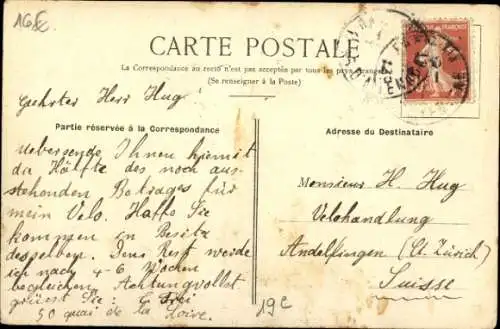 16 fc
CARTE POSTALE
La Correspondance au recto n'est pas acceptée par tous les pays étrangers
(Se renseigner à la Poste)
Geehrter Herr Hug!
Partie réservée à la Correspondance
Adresse du Destinataire
Uebersende Ihnen hiemit
da Hälfte des noch aus-
stehenden Betrages für
mein Velo. Hoffe Sie
kommen in Besitz
desselben. Den Rest werde
ich nach 4-6 Wochen
begleichen. Achtungsvollst
grüsst Sie: Frei
50 quai de la Loire.
Monsieur H. Hug
Velohandlung
Andelfingen (Ct. Zürich)
Suisse
19e